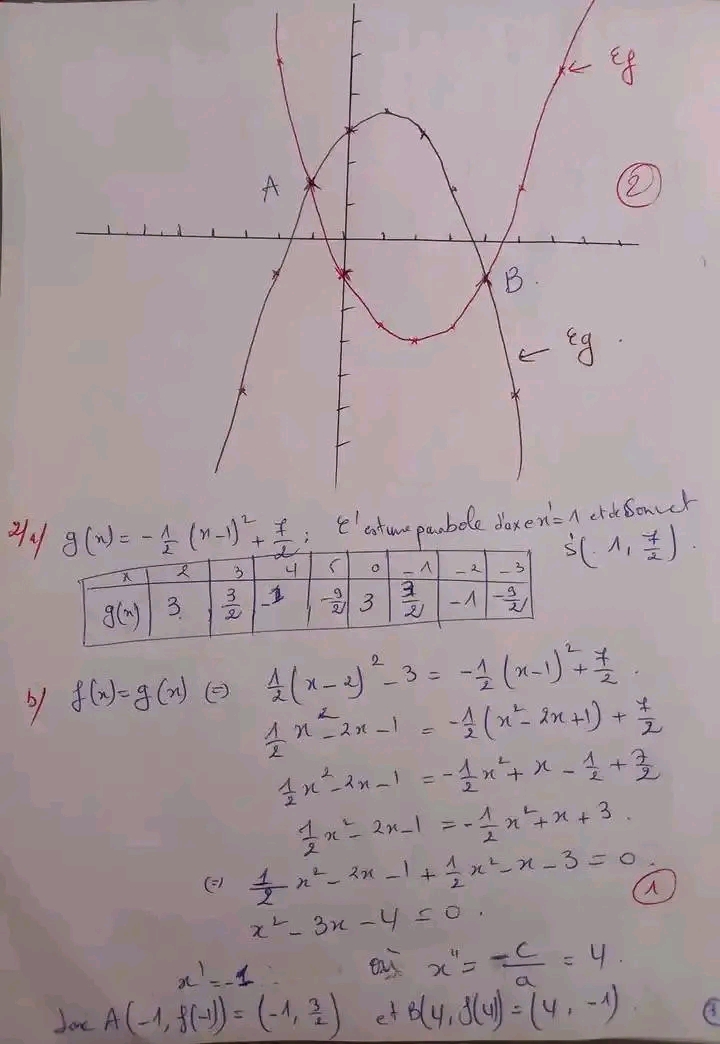 ← ℰf
A
②
B.
← ℰg.
2/a/ g(x) = -1/2 (x-1)² + 7/2 ; ℰ' est une parabole d'axe x' = 1 et de Sommet
S'(. 1, 7/2).
x | 2 | 3 | 4 | 5 | 0 | -1 | -2 | -3
g(x) | 3 | 3/2 | -1 | -9/2 | 3 | 3/2 | -1 | -9/2
b/ f(x) = g(x) (=) 1/2(x-2)² - 3 = -1/2(x-1)² + 7/2.
1/2 x² - 2x - 1 = -1/2(x² - 2x + 1) + 7/2
1/2 x² - 2x - 1 = -1/2 x² + x - 1/2 + 7/2
1/2 x² - 2x - 1 = -1/2 x² + x + 3.
(=) 1/2 x² - 2x - 1 + 1/2 x² - x - 3 = 0.
①
x² - 3x - 4 = 0.
x' = -1 où x'' = -c/a = 4.
donc A(-1, f(-1)) = (-1, 3/2) et B(4, f(4)) = (4, -1).